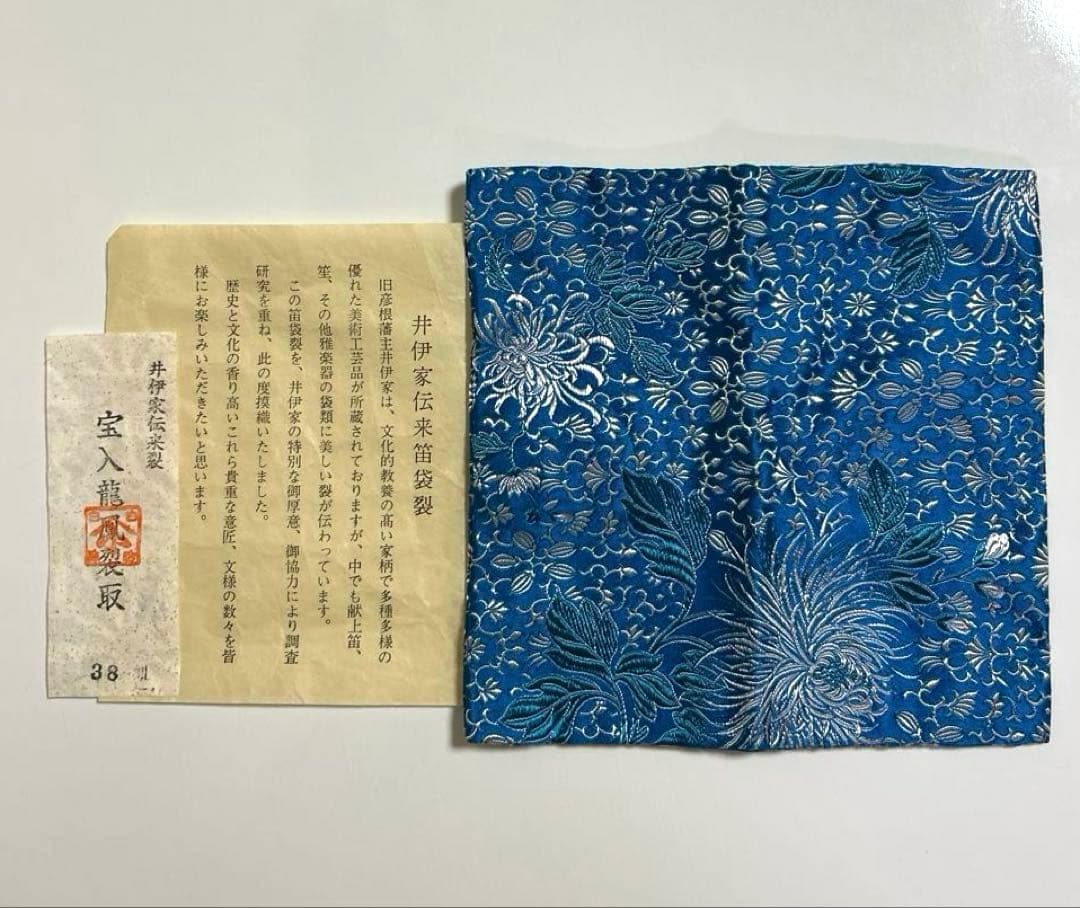 井伊家伝来笛袋裂
旧彦根藩主井伊家は、文化的教養の高い家柄で多種多様の
優れた美術工芸品が所蔵されておりますが、中でも献上笛、
笙、その他雅楽器の袋類に美しい裂が伝わっています。
この笛袋裂を、井伊家の特別な御厚意、御協力により調査
研究を重ね、此の度摸織いたしました。
歴史と文化の香り高いこれら貴重な意匠、文様の数々を皆
様にお楽しみいただきたいと思います。
井伊家伝来裂
宝入龍鳳裂取
38